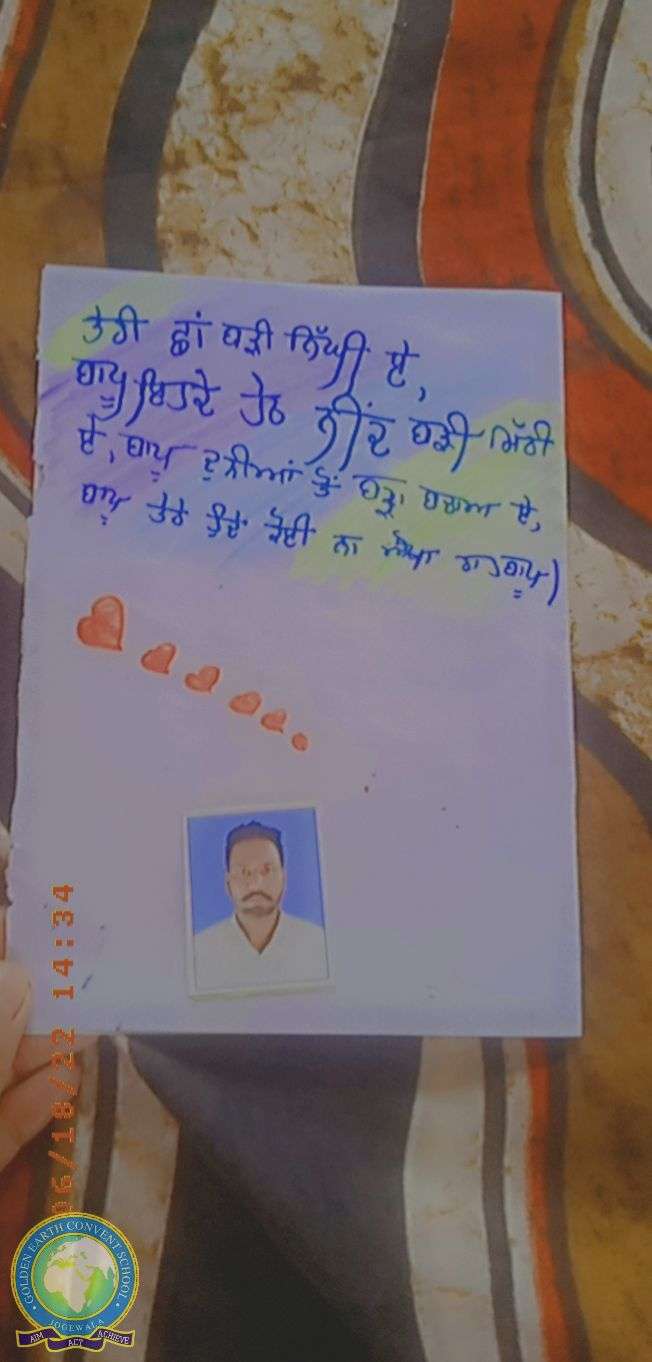 ਤੇਰੀ ਛਾਂ ਬੜੀ ਨਿੱਘੀ ਏ,
ਬਾਪੂ ਹੇਠ ਨੀਂਦ ਬੜੀ ਮਿੱਠੀ
ਏ, ਬਾਪੂ ਦੁਨੀਆਂ ਤੋਂ ਏ,
ਬਾਪੂ ਤੇਰੇ ਕੋਈ ਨਾ ਬਾਪੂ)
06/18/22 14:34
GOLDEN EARTH CONVENT SCHOOL
JOGEWALA
AIM ACT ACHIEVE